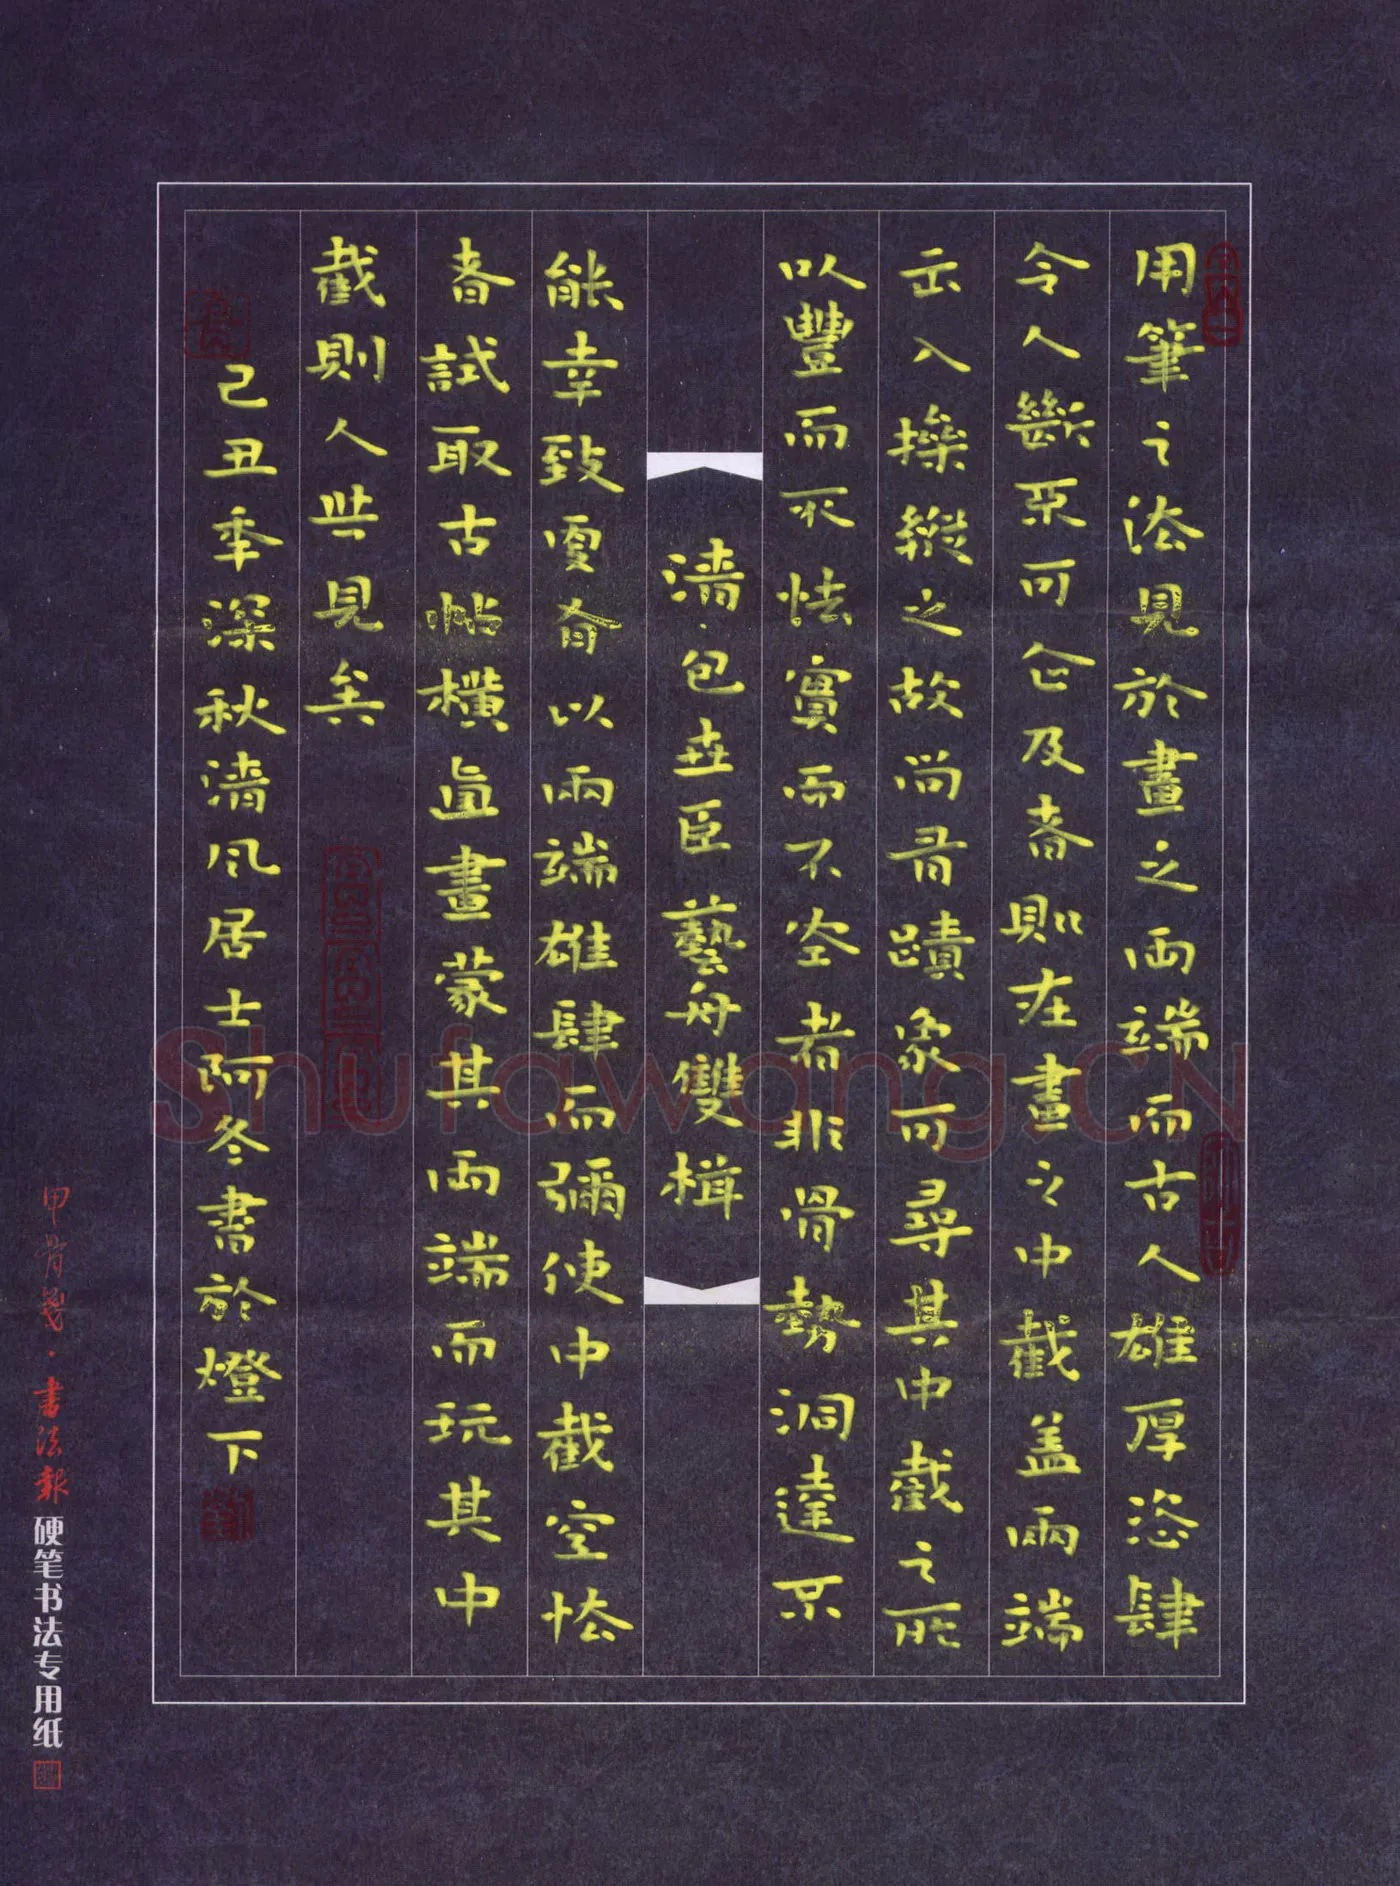 用筆之法見於畫之兩端而古人雄厚恣肆
令人斷不可企及者則在畫之中截蓋兩端
出入操縱之故尚有蹟象可尋其中截之所
以豐而不怯實而不空者非骨勢洞達不
清·包世臣藝舟雙楫
能幸致更有以兩端雄肆而彌使中截空怯
者試取古帖橫直畫蒙其兩端而玩其中
截則人共見矣
己丑季深秋清風居士阿冬書於燈下
甲骨箋·書法報硬笔书法专用纸
Shufawang.CN